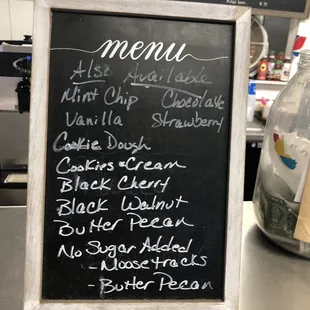 menu
Also Available
Mint Chip Chocolate
Vanilla Strawberry
Cookie Dough
Cookies & Cream
Black Cherry
Black Walnut
Butter Pecan
No Sugar Added
- Moosetracks
- Butter Pecan